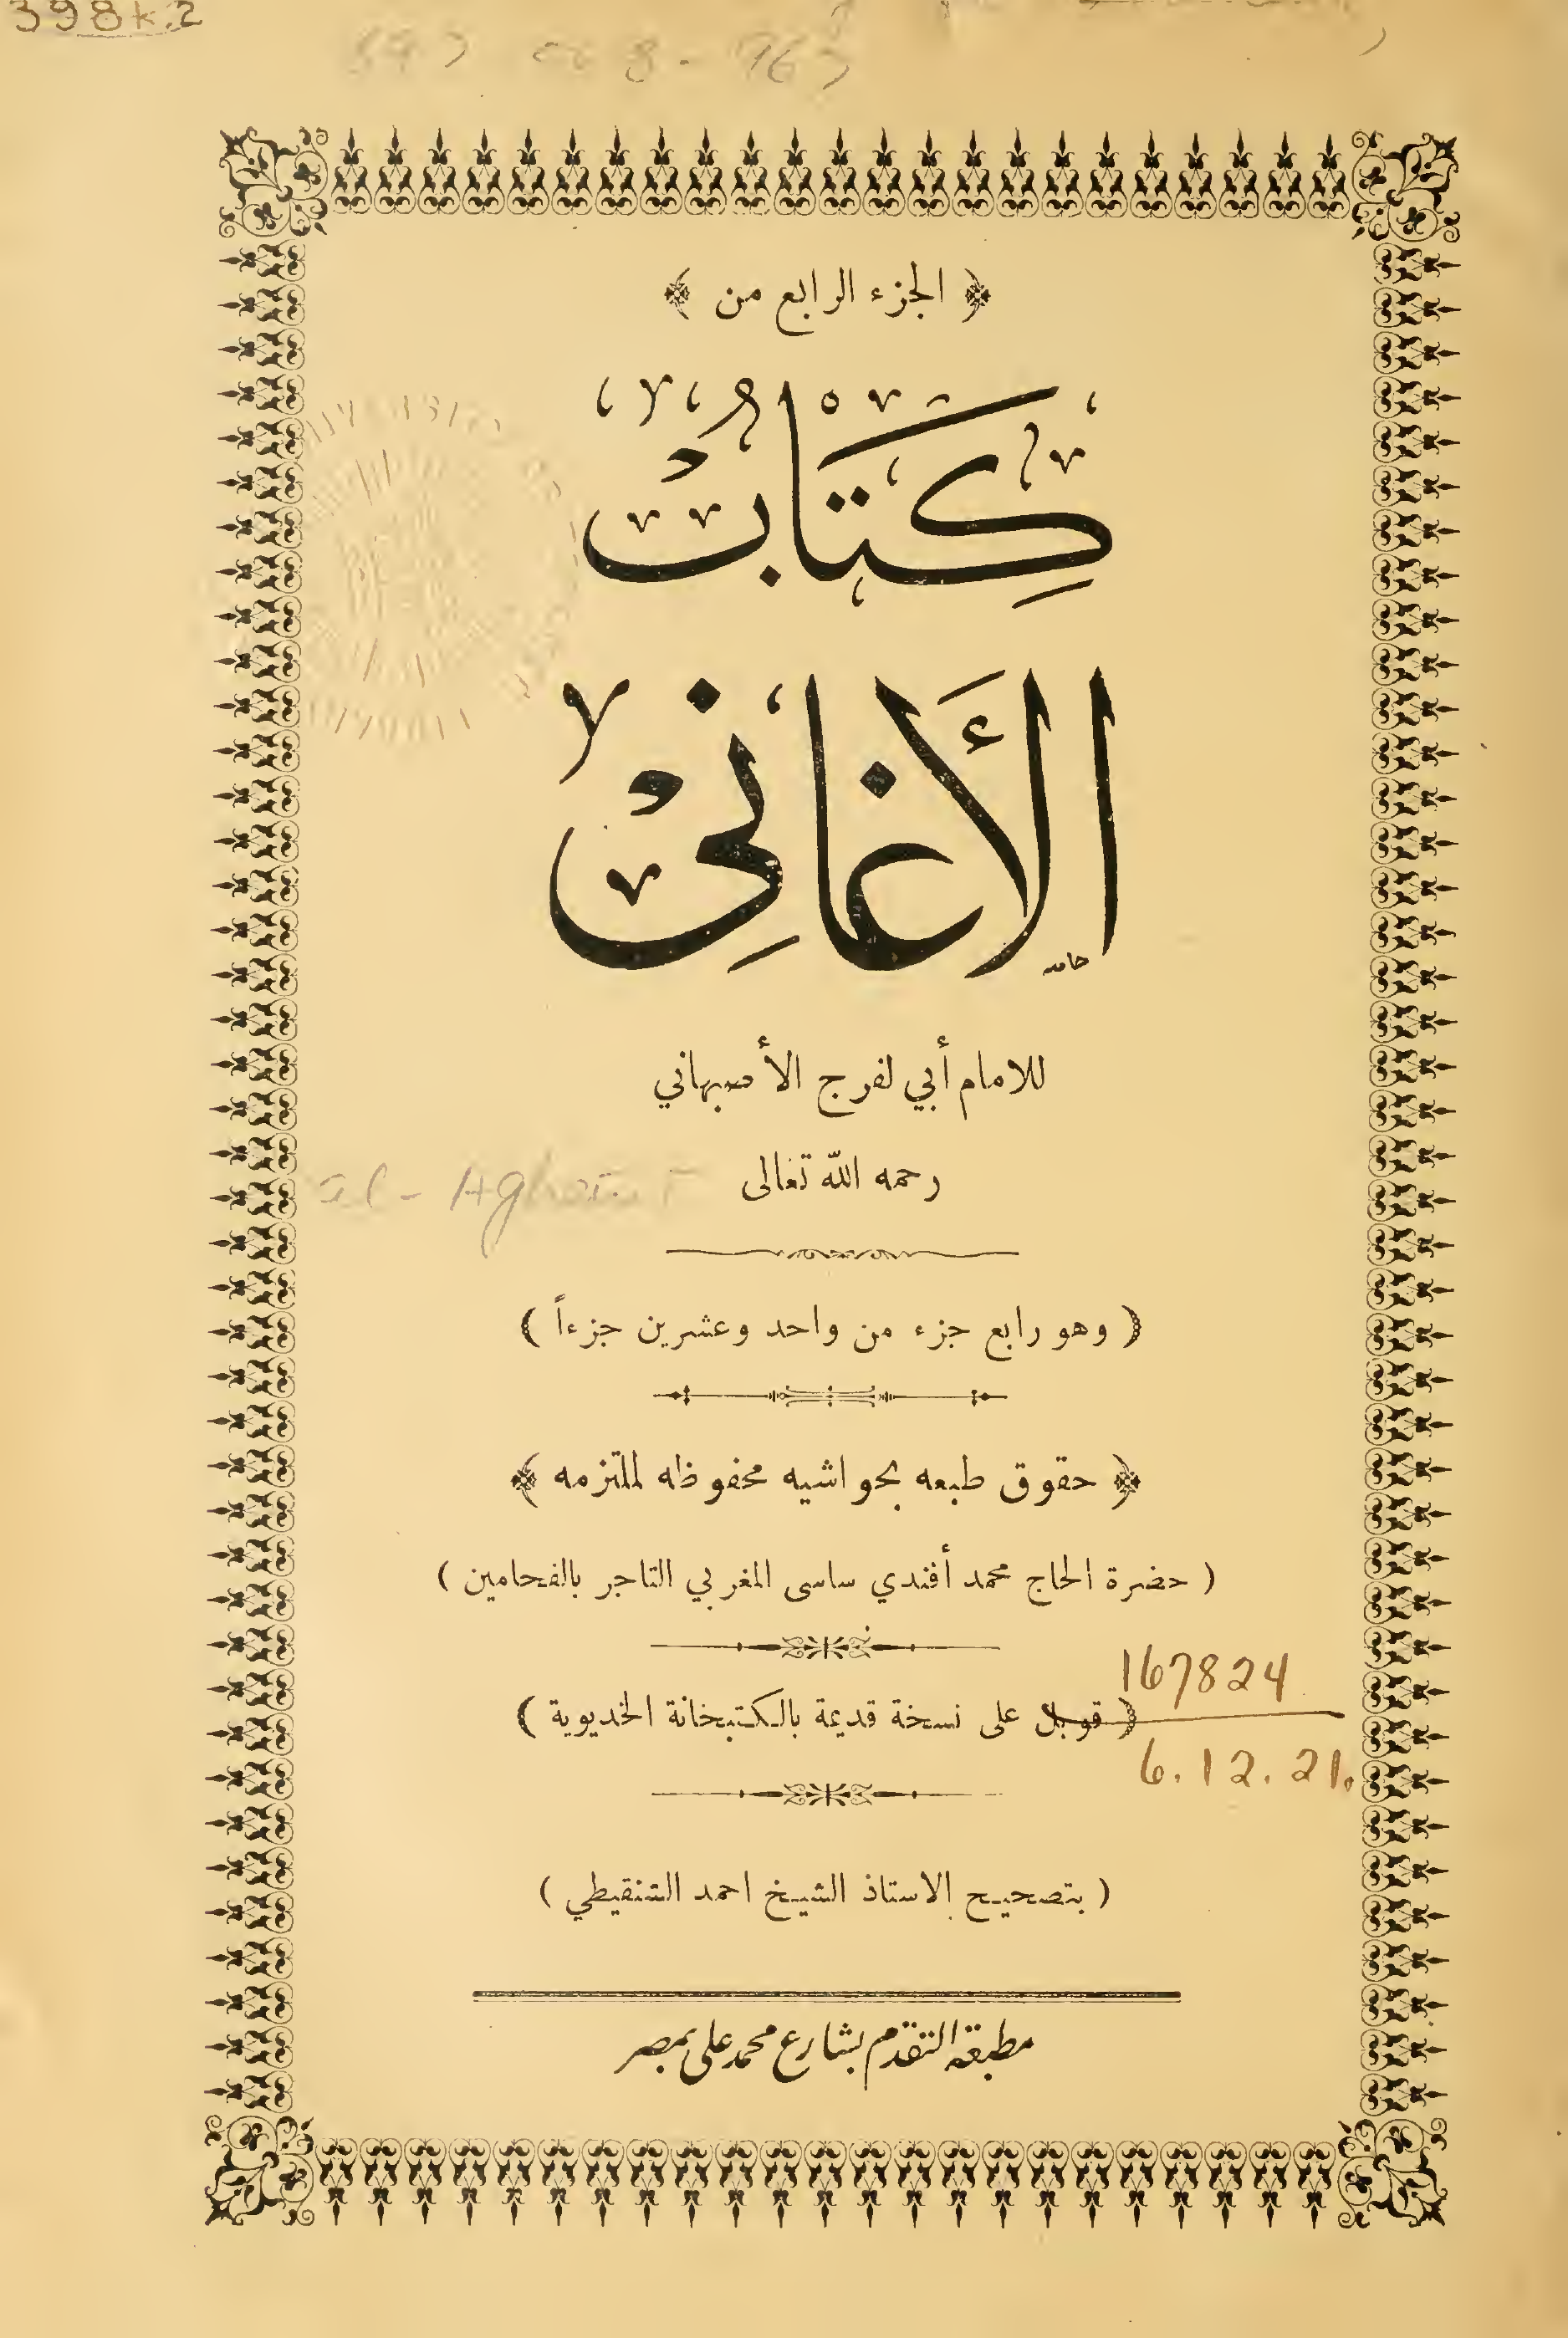 398k.2
﴿ الجزء الرابع من ﴾
كتاب
الأغاني
حامد
للامام أبي لفرج الأصبهاني
رحمه الله تعالى
el - Aghani
( وهو رابع جزء من واحد وعشرين جزءاً )
﴿ حقوق طبعه بحواشيه محفوظه لملتزمه ﴾
( حضرة الحاج محمد أفندي ساسى المغربي التاجر بالفحامين )
167824
( قوبل على نسخة قديمة بالكتبخانة الخديوية )
6.12.21.
( بتصحيح الاستاذ الشيخ احمد الشنقيطي )
مطبعة التقدم بشارع محمد على بمصر